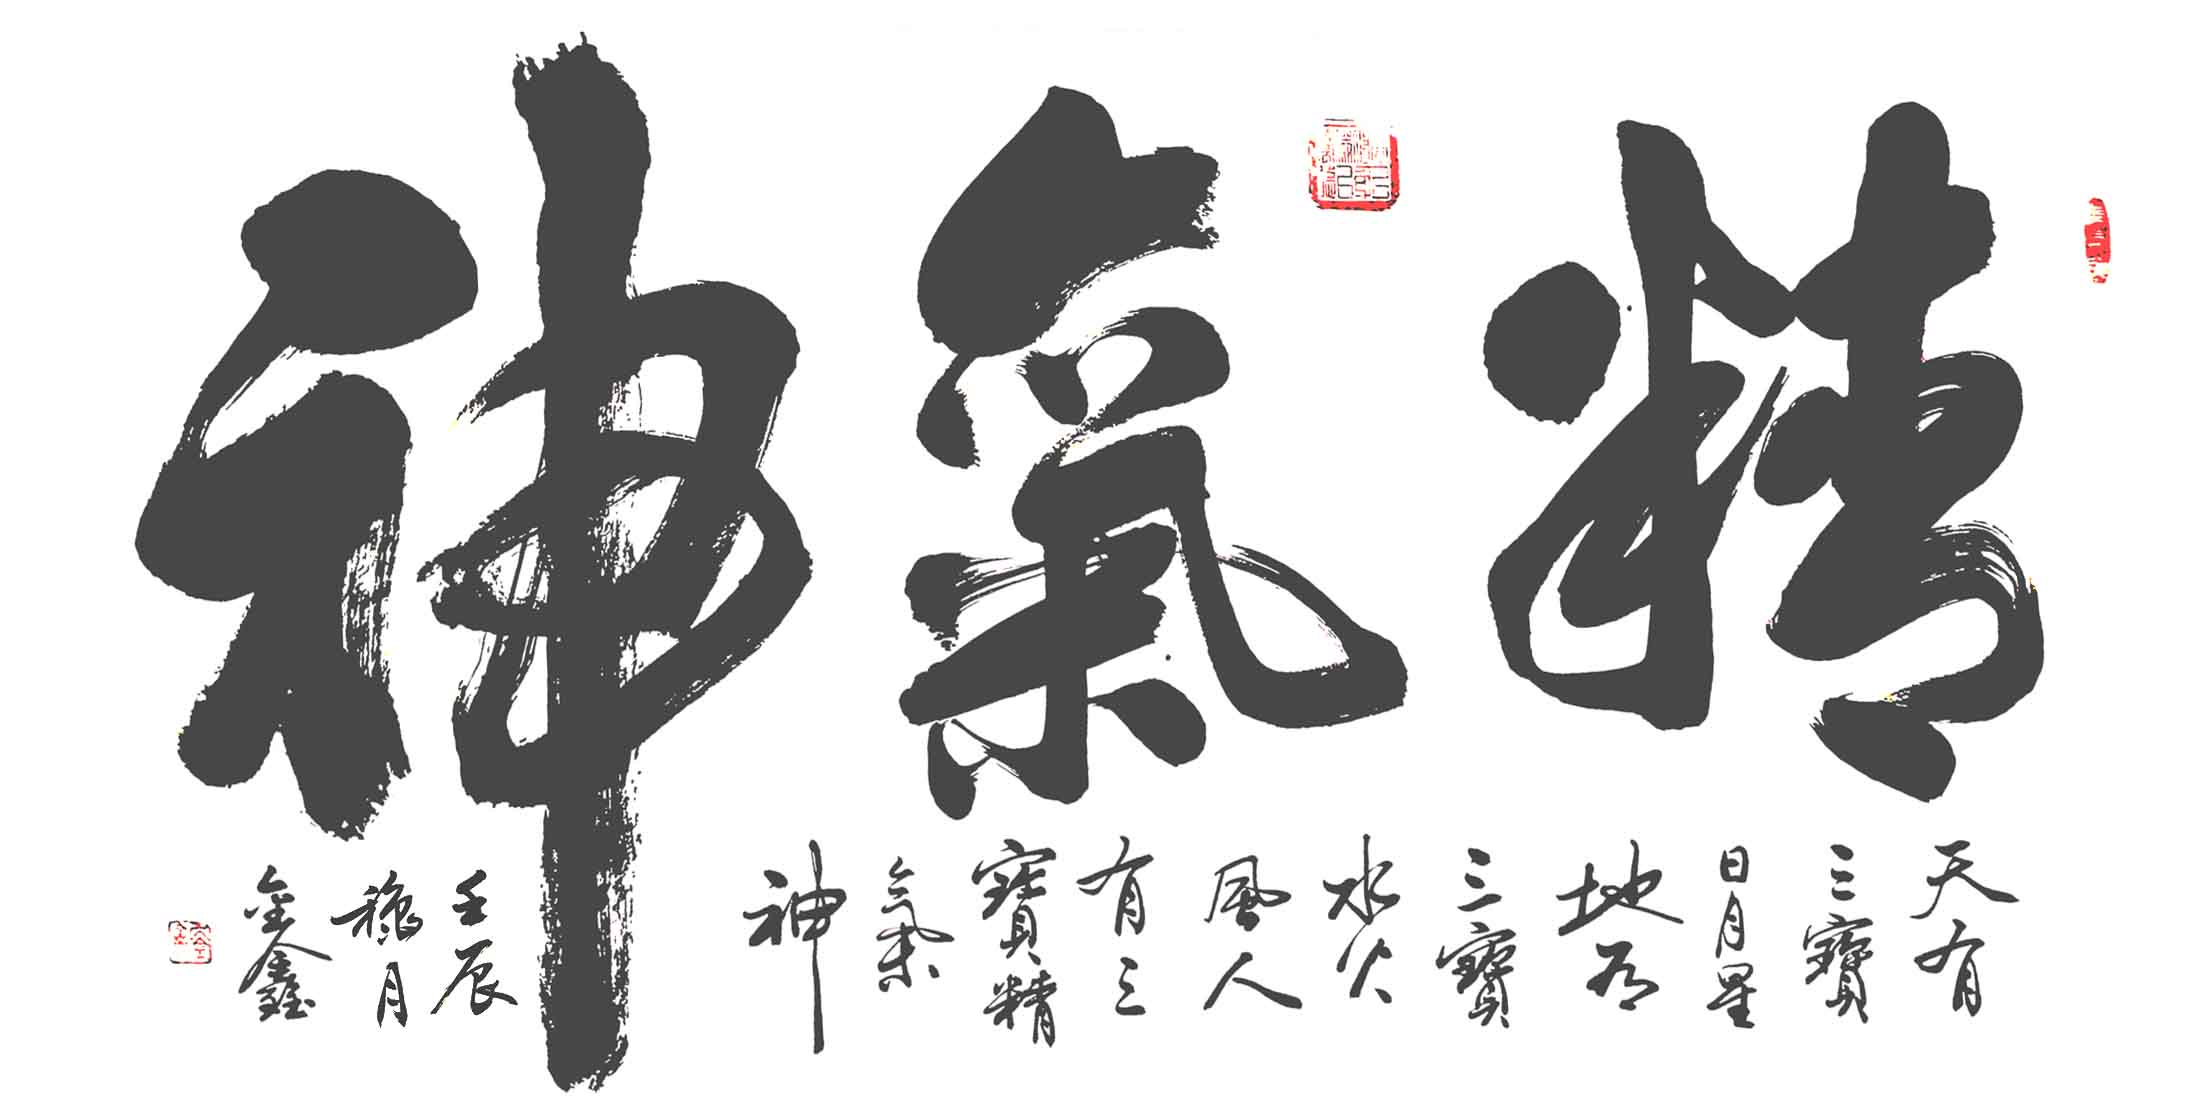 精氣神
天有
三寶
日月星
地有
三寶
水火
風人
有三
寶精
氣
神
壬辰
穐月
金鑫